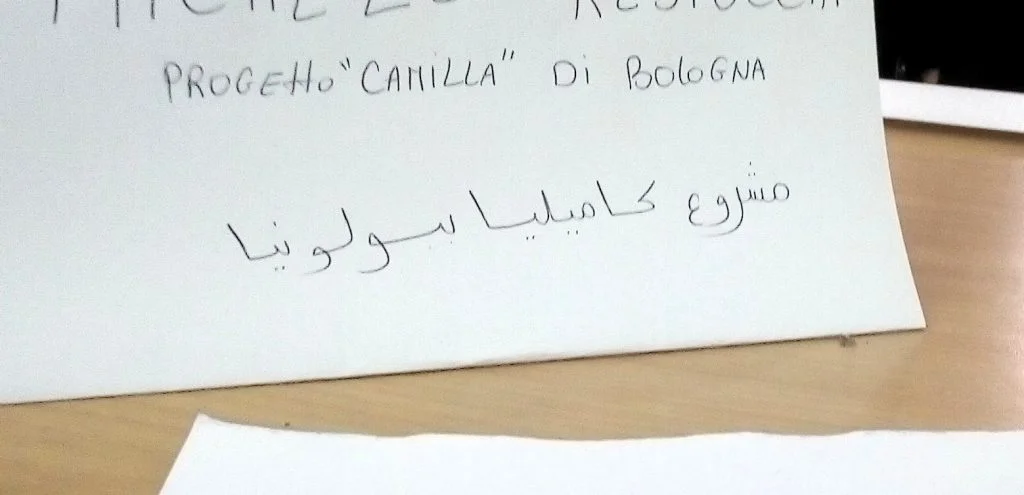 PROGETTO "CAMILLA" Di BOLOGNA
مشروع كاميليا ببولونيا